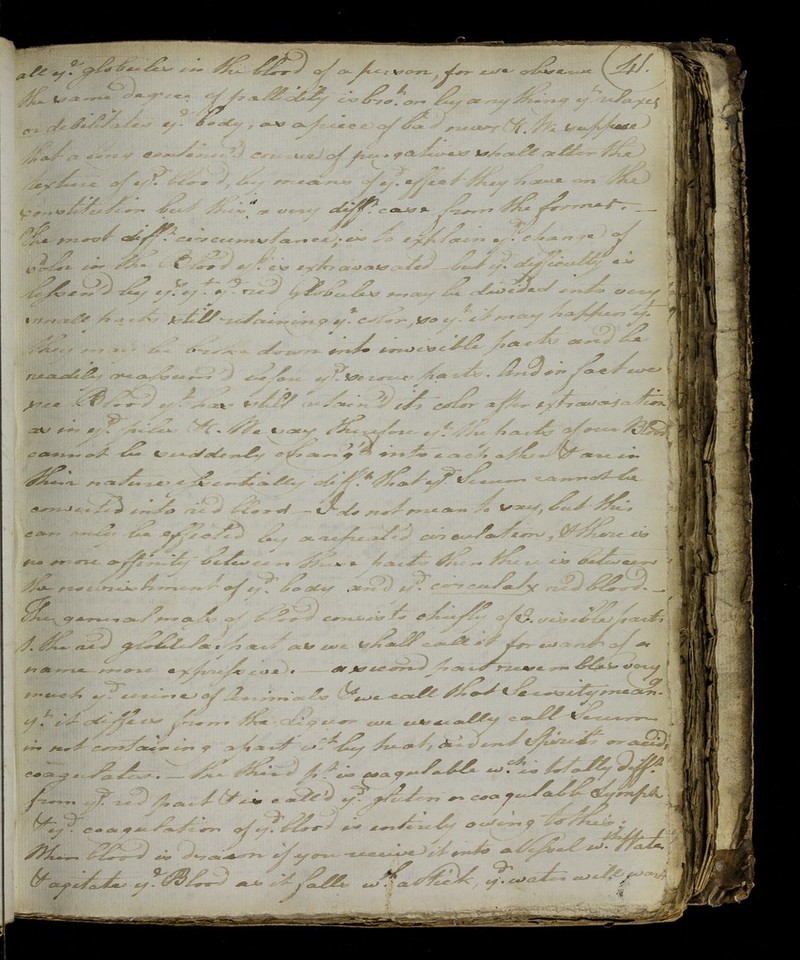 all ye. globules in the blood of a person, for we observe 41.
the same degree of pallidity is bro.t on by any thing yt. relaxes
or debilitates ye. body, as a piece of bad news &. We suppose
that a long continu'd course of purgatives shall alter the
texture of ye. blood, by means of ye. effect they have on the
constitution but this a very difft. case from the former. —
The most difft. circumstance, is to explain ye. change of
color in the Blood yt. is extravasated — but ye. difficulty is
lessen'd by ye. red globules may be divided into very
small parts still retaining ye. color, so yt. it may happen yt.
they may be broke down into invisible parts and be
readily reassum'd ye. serous parts. And in fact we
see Blood yt. has still retain'd its color after extravasation
as in ye. piles &. We say therefore yt. the parts of our Blood
cannot be suddenly chang'd into each other & are in
their nature essentially difft. that ye. Serum cannot be
converted into red blood — I do not mean to say, but this
can only be effected by a repeated circulation, & there is
no more affinity between these parts then there is between
the nourishment of ye. body and ye. circulatg red blood. —
The general mass of blood consists chiefly of 3. visible parts
1. the red globular part as we shall call it for want of a
name more expressive. — a second part resembles very
much ye. urine of Animals & we call that Serosity meang.
yt. it differs from the Liquor we usually call Serum
in not containing a part wch. by heat, ardent Spirits or acids
coagulates. — the third pt. is coagulable wch. is totally difft.
from ye. red part & is call'd ye. gluten or coagulable Lymph
& ye. coagulation of ye. blood is entirely owing to this:
When blood is drawn if you receive it into a Vessel wth. Water
& agitate ye. Blood as it falls wth. a Stick, ye. water will wash